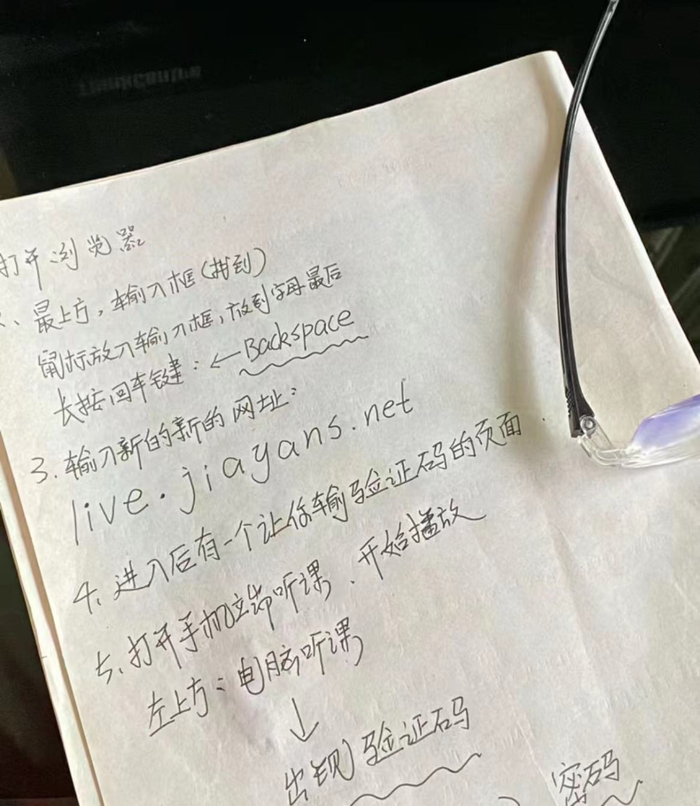 打开浏览器
、最上方,输入框(找到)
鼠标放入输入框,放到字母最后
长按回车键:←Backspace
3、输入新的新的网址:
live.jiayans.net
4、进入后有一个让你输验证码的页面.
5、打开手机端听课、开始播放
左上方:电脑听课
↓
出现验证码
密码